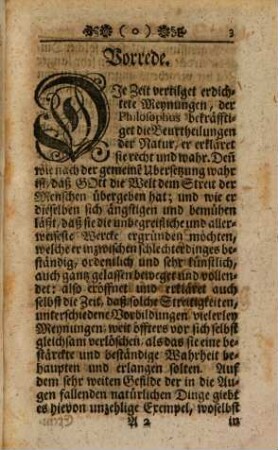 ( o ) 3
Vorrede.
DIe Zeit vertilget erdich-
tete Meynungen, der
Philosophus bekräffti-
get die Beurtheilungen
der Natur, er erkläret
sie recht und wahr. Deñ
wie nach der gemeinē Ubersetzung wahr
ist, daß GOtt die Welt dem Streit der
Menschen übergeben hat; und wie er
dieselben sich ängstigen und bemühen
läßt, daß sie die unbegreifliche und aller-
weiseste Wercke ergründen möchten,
welche er inzwischen schlechterdinges be-
ständig, ordentlich und sehr künstlich,
auch gantz gelassen beweget und vollen-
det: also eröffnet und erkläret auch
selbst die Zeit, daß solche Streitigkeiten,
unterschiedene Vorbildungen vielerley
Meynungen, weit öffters vor sich selbst
gleichsam verlöschen, als das sie eine be-
stärckte und beständige Wahrheit be-
haupten und erlangen solten. Auf
dem sehr weiten Gefilde der in die Au-
gen fallenden natürlichen Dinge giebt
es hievon unzehlige Exempel, woselbst
A 2 in